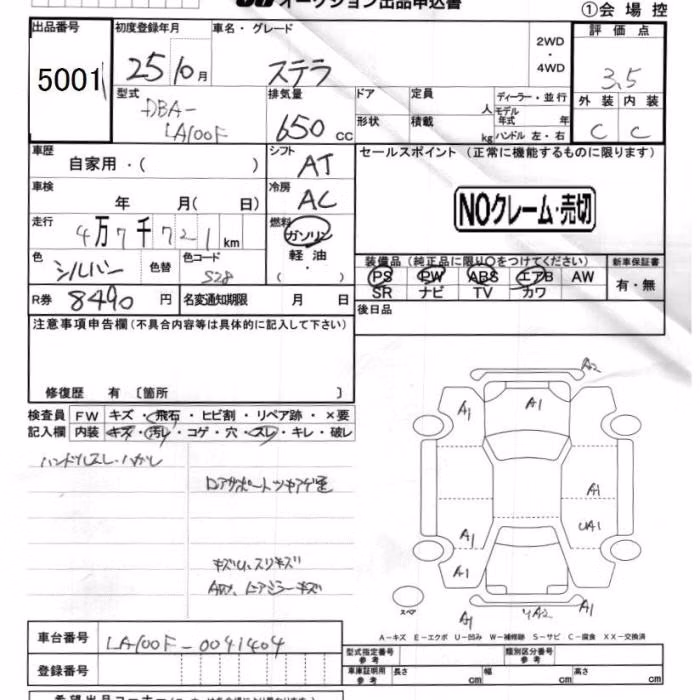 オークション出品申込書
①会場控
出品番号 5001
初度登録年月 25 10月
車名・グレード ステラ
2WD・4WD
評価点 3.5
外装 C 内装 C
型式 DBA-LA100F
排気量 650 CC
ドア 定員 人
形状 積載 kg
ディーラー・並行
モデル年式 年
ハンドル 左・右
車歴 自家用・( )
シフト AT
セールスポイント (正常に機能するものに限ります)
NOクレーム・売切
車検 年 月( 日)
冷房 AC
走行 4万7千721km
燃料 ガソリン 軽油・( )
色 シルバー 色替
色コード S28
装備品 (純正品に限り○をつけてください)
PS PW ABS エアB AW
SR ナビ TV カワ
新車保証書 有・無
R券 8490円
名変通知期限 月 日
後日品
注意事項申告欄(不具合内容等は具体的に記入して下さい)
修復歴 有 〔箇所 〕
検査員記入欄
FW キズ・飛石・ヒビ割・リペア跡・×要
内装 キズ・汚レ・コゲ・穴・スレ・キレ・破レ
ハンドルスレ・ハガレ
キズU、スリキズ
A2
A1
A1
A1
A1
UA1
A1
A1
A1
A2
スペア
A-キズ E-エクボ U-凹み W-補修跡 S-サビ C-腐食 XX-交換済
車台番号 LA100F-0041404
登録番号
型式指定番号 参考
類別区分番号 参考
車庫証明用 参考 長さ cm 幅 cm 高さ cm